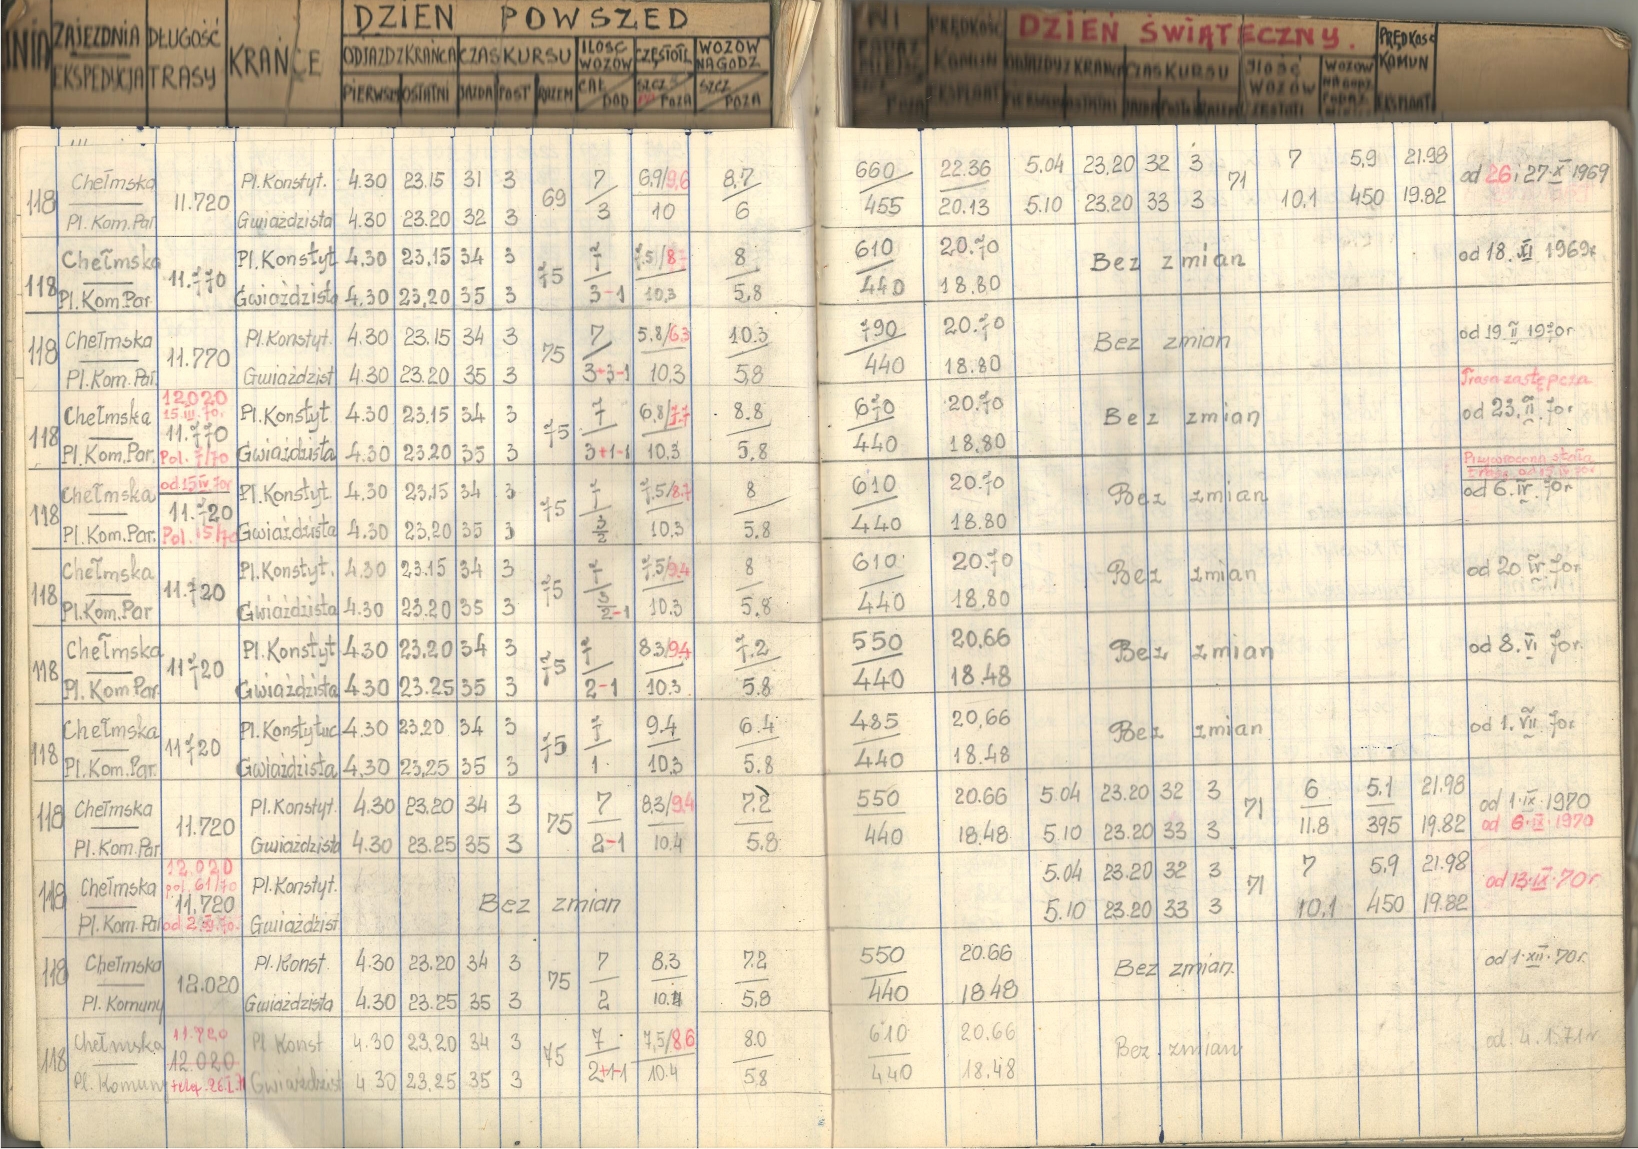 DZIEŃ POWSZED
DZIEŃ ŚWIĄTECZNY.
ZAJEZDNIA DŁUGOŚĆ KRAŃCE ODJAZD Z KRAŃCA CZAS KURSU ILOŚĆ WOZÓW CZĘSTOTL WOZÓW NA GODZ
EKSPEDYCJA TRASY PIERWSZ OSTATNI JAZDA POST RAZEM CAŁ DOD SZCZ POZA SZCZ POZA
PRĘDKOŚĆ KOMUN EKSPLOAT ODJAZDY Z KRAŃCA CZAS KURSU ILOŚĆ WOZÓW PRĘDKOŚĆ KOMUN EKSPLOAT
118 Chełmska 11.720 Pl.Konstyt. 4.30 23.15 31 3 69 7 6,9/9,6 8,7 660 22.36 5.04 23,20 32 3 71 7 5,9 21.98 od 26 i 27 X 1969
Pl. Kom. Par Gwiaździsta 4.30 23.20 32 3 3 10 6 455 20.13 5.10 23,20 33 3 10,1 450 19.82
118 Chełmska 11.770 Pl.Konstyt 4.30 23.15 34 3 75 7 7,5/8- 8 610 20.70 Bez zmian od 18. XI 1969r
Pl.Kom.Par. Gwiaździsta 4.30 23,20 35 3 3-1 10,3 5,8 440 18.80
118 Chełmska 11.770 Pl.Konstyt. 4.30 23.15 34 3 75 7 5.8/6.3 10.3 790 20.70 Bez zmian od 19.II 1970r
Pl.Kom.Par. Gwiaździst 4.30 23.20 35 3 3+3-1 10.3 5,8 440 18.80
12020 Trasa zastępcza
15.III.70r.
118 Chełmska 11.770 Pl.Konstyt 4.30 23.15 34 3 75 7 6,8/7.7 8.8 670 20.70 Bez zmian od 23.II.70r
Pl.Kom.Par. Pol. 7/70 Gwiaździsta 4.30 23.20 35 3 3+1-1 10.3 5,8 440 18.80
od 15 IV 70r Przywrócona stała
118 Chełmska 11.720 Pl.Konstyt. 4.30 23.15 34 3 75 7 7,5/8.7 8 610 20.70 Bez zmian od 6.IV.70r
Pl.Kom.Par. Pol.15/70 Gwiaździsta 4.30 23,20 35 3 3/2 10,3 5.8 440 18.80
118 Chełmska 11.720 Pl.Konstyt. 4.30 23.15 34 3 75 7 7,5/9.4 8 610 20.70 Bez zmian od 20 IV 70r.
Pl.Kom.Par Gwiaździsta 4.30 23.20 35 3 3/2-1 10.3 5,8 440 18.80
118 Chełmska 11720 Pl.Konstyt 4.30 23.20 34 3 75 7 8.3/9.4 7.2 550 20,66 Bez zmian od 8.VI 70r.
Pl. Kom Par. Gwiaździsta 4.30 23.25 35 3 2-1 10.3 5.8 440 18.48
118 Chełmska 11720 Pl.Konstytuc 4.30 23.20 34 3 75 7 9.4 6.4 485 20,66 Bez zmian od 1.VII 70r.
Pl.Kom.Par. Gwiaździsta 4.30 23,25 35 3 1 10.3 5.8 440 18.48
118 Chełmska 11.720 Pl.Konstyt. 4.30 23.20 34 3 75 7 8,3/9.4 7.2 550 20.66 5.04 23.20 32 3 71 6 5.1 21.98 od 1.IX.1970
Pl.Kom.Par Gwiaździsta 4.30 23.25 35 3 2-1 10.4 5,8 440 18.48 5.10 23.20 33 3 11.8 395 19.82 od 6.IX.1970
12.020
pol.61/70
118 Chełmska 11.720 Pl.Konstyt. Bez zmian 5.04 23.20 32 3 71 7 5,9 21.98 od 13.IX.70r
Pl.Kom.Par Gwiaździst 5.10 23.20 33 3 10,1 450 19.82
118 Chełmska 12.020 Pl.Konst. 4.30 23.20 34 3 75 7 8.3 7.2 550 20.66 Bez zmian. od 1.XII.70r.
Pl. Komuny Gwiaździsta 4.30 23.25 35 3 2 10.4 5,8 440 18.48
11.720
118 Chełmska 12.020 Pl Konst 4.30 23,20 34 3 75 7 7,5/8.6 8.0 610 20.66 Bez zmian od. 4.1.71r
Pl. Komuny Gwiaździst 4.30 23,25 35 3 2+1-1 10.4 5,8 440 18.48